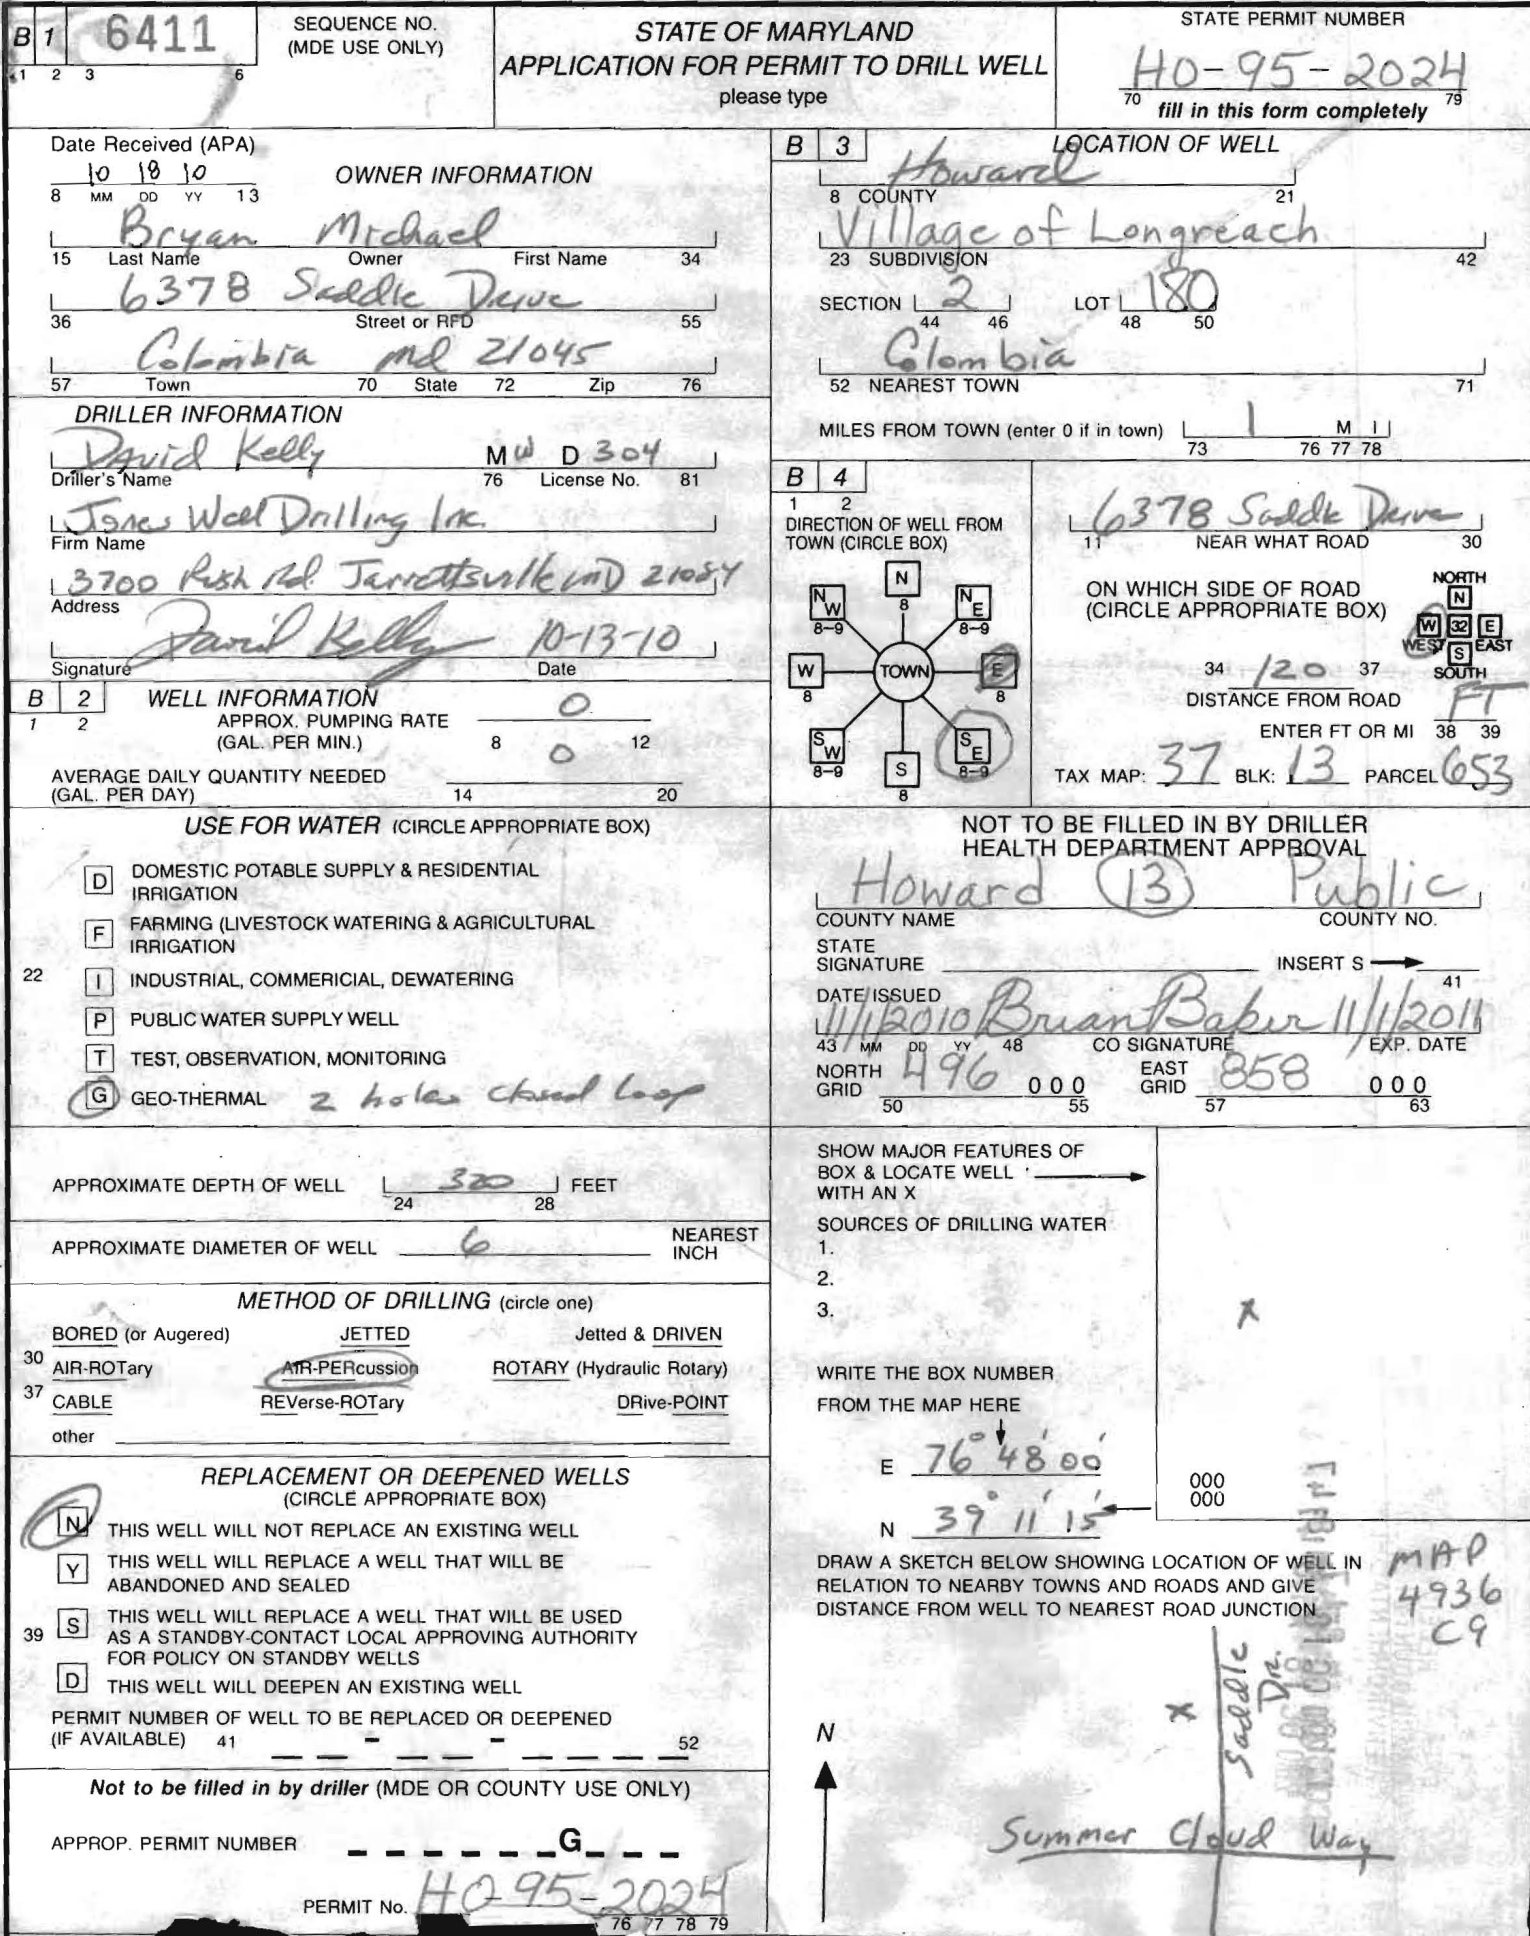 B 1 6411
1 2 3 6
SEQUENCE NO.
(MDE USE ONLY)
STATE OF MARYLAND
APPLICATION FOR PERMIT TO DRILL WELL
please type
STATE PERMIT NUMBER
HO-95-2024
70 79
fill in this form completely
Date Received (APA)
10 18 10
8 MM DD YY 13
OWNER INFORMATION
Bryan Michael
15 Last Name Owner First Name 34
6378 Saddle Drive
36 Street or RFD 55
Colombia md 21045
57 Town 70 State 72 Zip 76
DRILLER INFORMATION
David Kelly MW D 304
Driller's Name 76 License No. 81
Jones Well Drilling Inc.
Firm Name
3700 Rush Rd. Jarrettsville MD 21084
Address
David Kelly 10-13-10
Signature Date
B 2 WELL INFORMATION
1 2
APPROX. PUMPING RATE 0
(GAL. PER MIN.) 8 12
AVERAGE DAILY QUANTITY NEEDED 0
(GAL. PER DAY) 14 20
USE FOR WATER (CIRCLE APPROPRIATE BOX)
D DOMESTIC POTABLE SUPPLY & RESIDENTIAL
IRRIGATION
F FARMING (LIVESTOCK WATERING & AGRICULTURAL
IRRIGATION
22 I INDUSTRIAL, COMMERICIAL, DEWATERING
P PUBLIC WATER SUPPLY WELL
T TEST, OBSERVATION, MONITORING
G GEO-THERMAL 2 holes closed loop
APPROXIMATE DEPTH OF WELL 320 FEET
24 28
APPROXIMATE DIAMETER OF WELL 6 NEAREST
INCH
METHOD OF DRILLING (circle one)
BORED (or Augered) JETTED Jetted & DRIVEN
30 AIR-ROTary AIR-PERcussion ROTARY (Hydraulic Rotary)
37 CABLE REVerse-ROTary DRive-POINT
other
REPLACEMENT OR DEEPENED WELLS
(CIRCLE APPROPRIATE BOX)
N THIS WELL WILL NOT REPLACE AN EXISTING WELL
Y THIS WELL WILL REPLACE A WELL THAT WILL BE
ABANDONED AND SEALED
39 S THIS WELL WILL REPLACE A WELL THAT WILL BE USED
AS A STANDBY-CONTACT LOCAL APPROVING AUTHORITY
FOR POLICY ON STANDBY WELLS
D THIS WELL WILL DEEPEN AN EXISTING WELL
PERMIT NUMBER OF WELL TO BE REPLACED OR DEEPENED
(IF AVAILABLE) 41 - - 52
Not to be filled in by driller (MDE OR COUNTY USE ONLY)
APPROP. PERMIT NUMBER G
PERMIT No. HO-95-2024
76 77 78 79
B 3 LOCATION OF WELL
Howard
8 COUNTY 21
Village of Longreach
23 SUBDIVISION 42
SECTION 2 LOT 180
44 46 48 50
Colombia
52 NEAREST TOWN 71
MILES FROM TOWN (enter 0 if in town) 1 M I
73 76 77 78
B 4
1 2
DIRECTION OF WELL FROM
TOWN (CIRCLE BOX)
N
8
NW NE
8-9 8-9
W TOWN E
8 8
SW SE
8-9 8-9
S
8
6378 Saddle Drive
11 NEAR WHAT ROAD 30
ON WHICH SIDE OF ROAD
(CIRCLE APPROPRIATE BOX)
NORTH
N
W 32 E
WEST S EAST
SOUTH
34 120 37
DISTANCE FROM ROAD
FT
ENTER FT OR MI 38 39
TAX MAP: 37 BLK: 13 PARCEL 653
NOT TO BE FILLED IN BY DRILLER
HEALTH DEPARTMENT APPROVAL
Howard 13 Public
COUNTY NAME COUNTY NO.
STATE
SIGNATURE INSERT S
41
DATE ISSUED
11/1/2010 Brian Baker 11/1/2011
43 MM DD YY 48 CO SIGNATURE EXP. DATE
NORTH
GRID 496 000
50 55
EAST
GRID 858 000
57 63
SHOW MAJOR FEATURES OF
BOX & LOCATE WELL
WITH AN X
SOURCES OF DRILLING WATER
1.
2.
3.
X
WRITE THE BOX NUMBER
FROM THE MAP HERE
E 76° 48' 00'
N 39° 11' 15'
000
000
DRAW A SKETCH BELOW SHOWING LOCATION OF WELL IN
RELATION TO NEARBY TOWNS AND ROADS AND GIVE
DISTANCE FROM WELL TO NEAREST ROAD JUNCTION
MAP
4936
C9
Saddle
Dr.
X
N
Summer Cloud Way